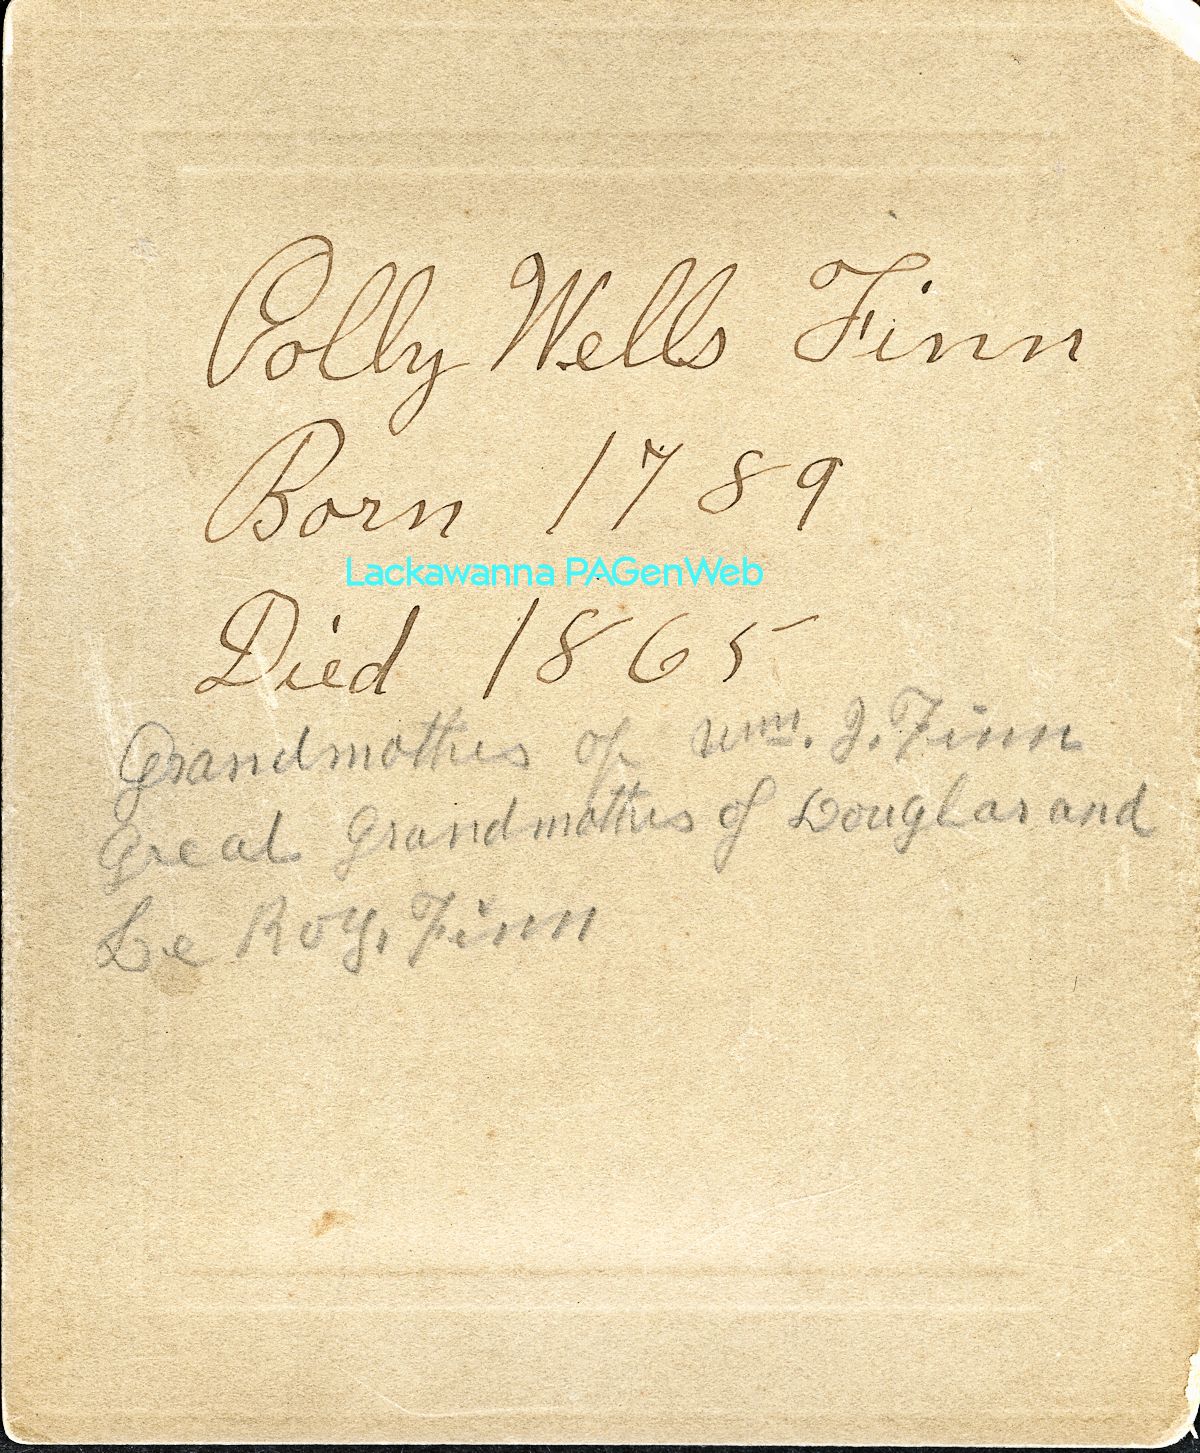 Polly Wells Finn
Born 1789
Lackawanna PAGenWeb
Died 1865
Grandmother of Wm. J. Finn
Great Grandmother of Douglas and
Le Roy. Finn